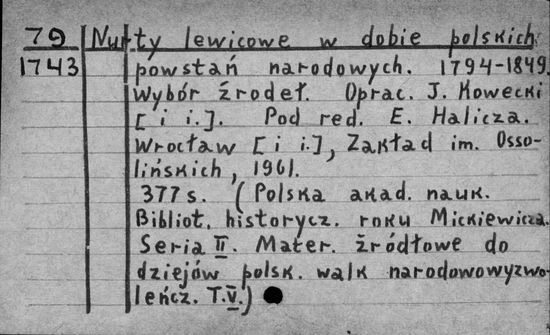 79 Nurty lewicowe w dobie polskich
1743 powstań narodowych. 1794-1849.
Wybór źrodeł. Oprac. J. Kowecki
[i i.]. Pod red. E. Halicza.
Wrocław [i i.], Zakład im. Osso-
lińskich, 1961.
377 s. (Polska akad. nauk.
Bibliot. historycz. roku Mickiewicza.
Seria II. Mater. źródłowe do
dziejów polsk. walk narodowowyzwo-
leńcz. T.V.)